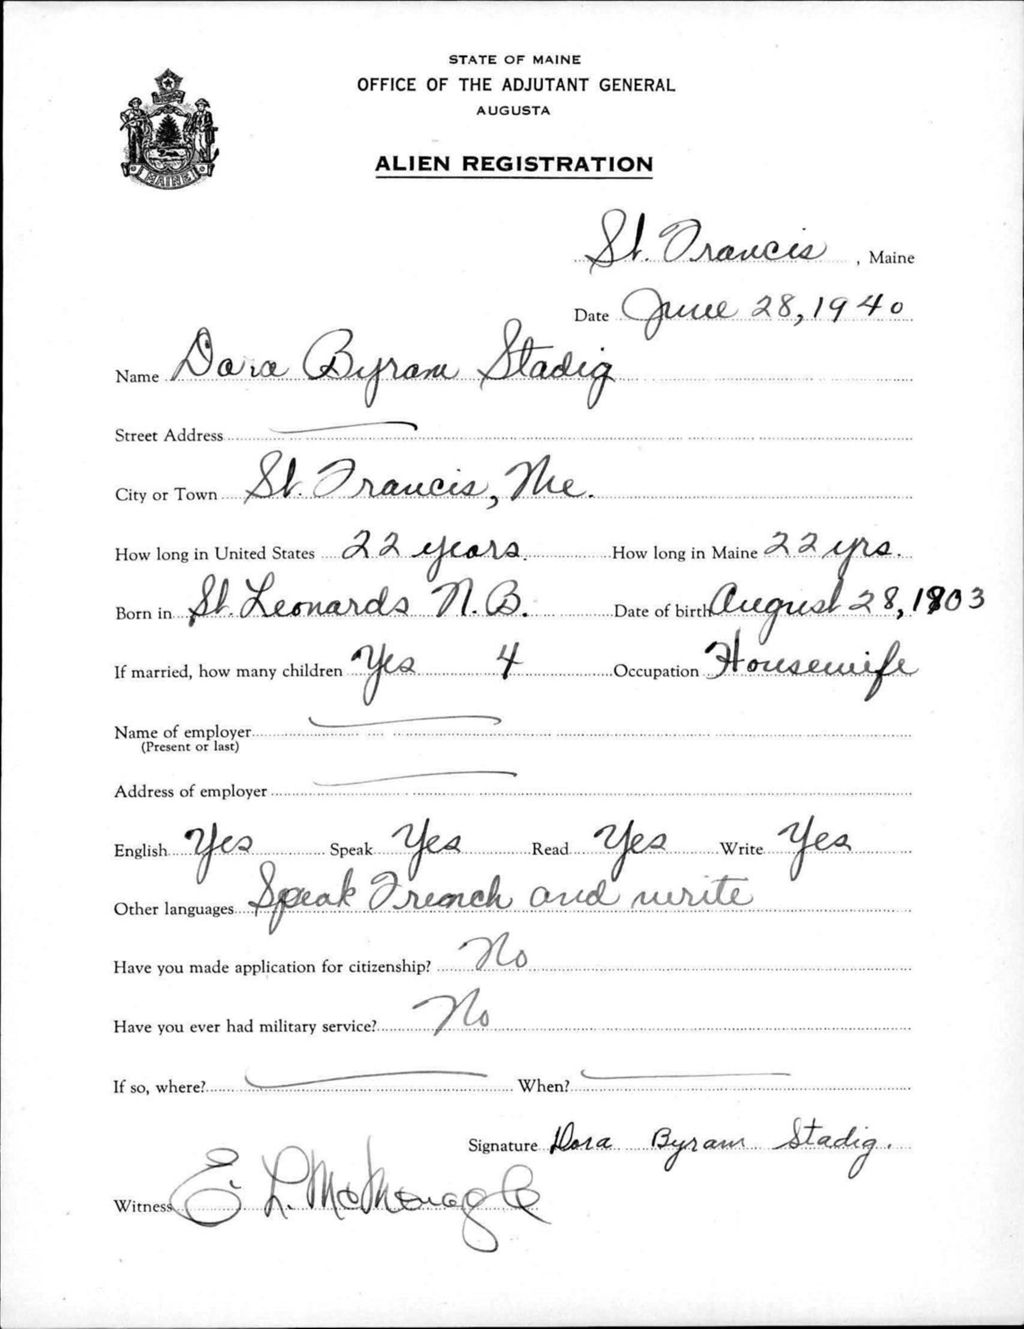 STATE OF MAINE
OFFICE OF THE ADJUTANT GENERAL
AUGUSTA
ALIEN REGISTRATION
MAINE
St. Francis, Maine
Date June 28, 1940
Name Dora Byram Stadig
Street Address
City or Town St. Francis, Me.
How long in United States 22 years. How long in Maine 22 yrs.
Born in St. Leonards N.B. Date of birth August 28, 1903
If married, how many children Yes 4 Occupation Housewife
Name of employer
(Present or last)
Address of employer
English Yes Speak Yes Read Yes Write Yes
Other languages Speak French and write
Have you made application for citizenship? No
Have you ever had military service? No
If so, where? When?
Signature Dora Byram Stadig.
Witness E. L. McMonagle